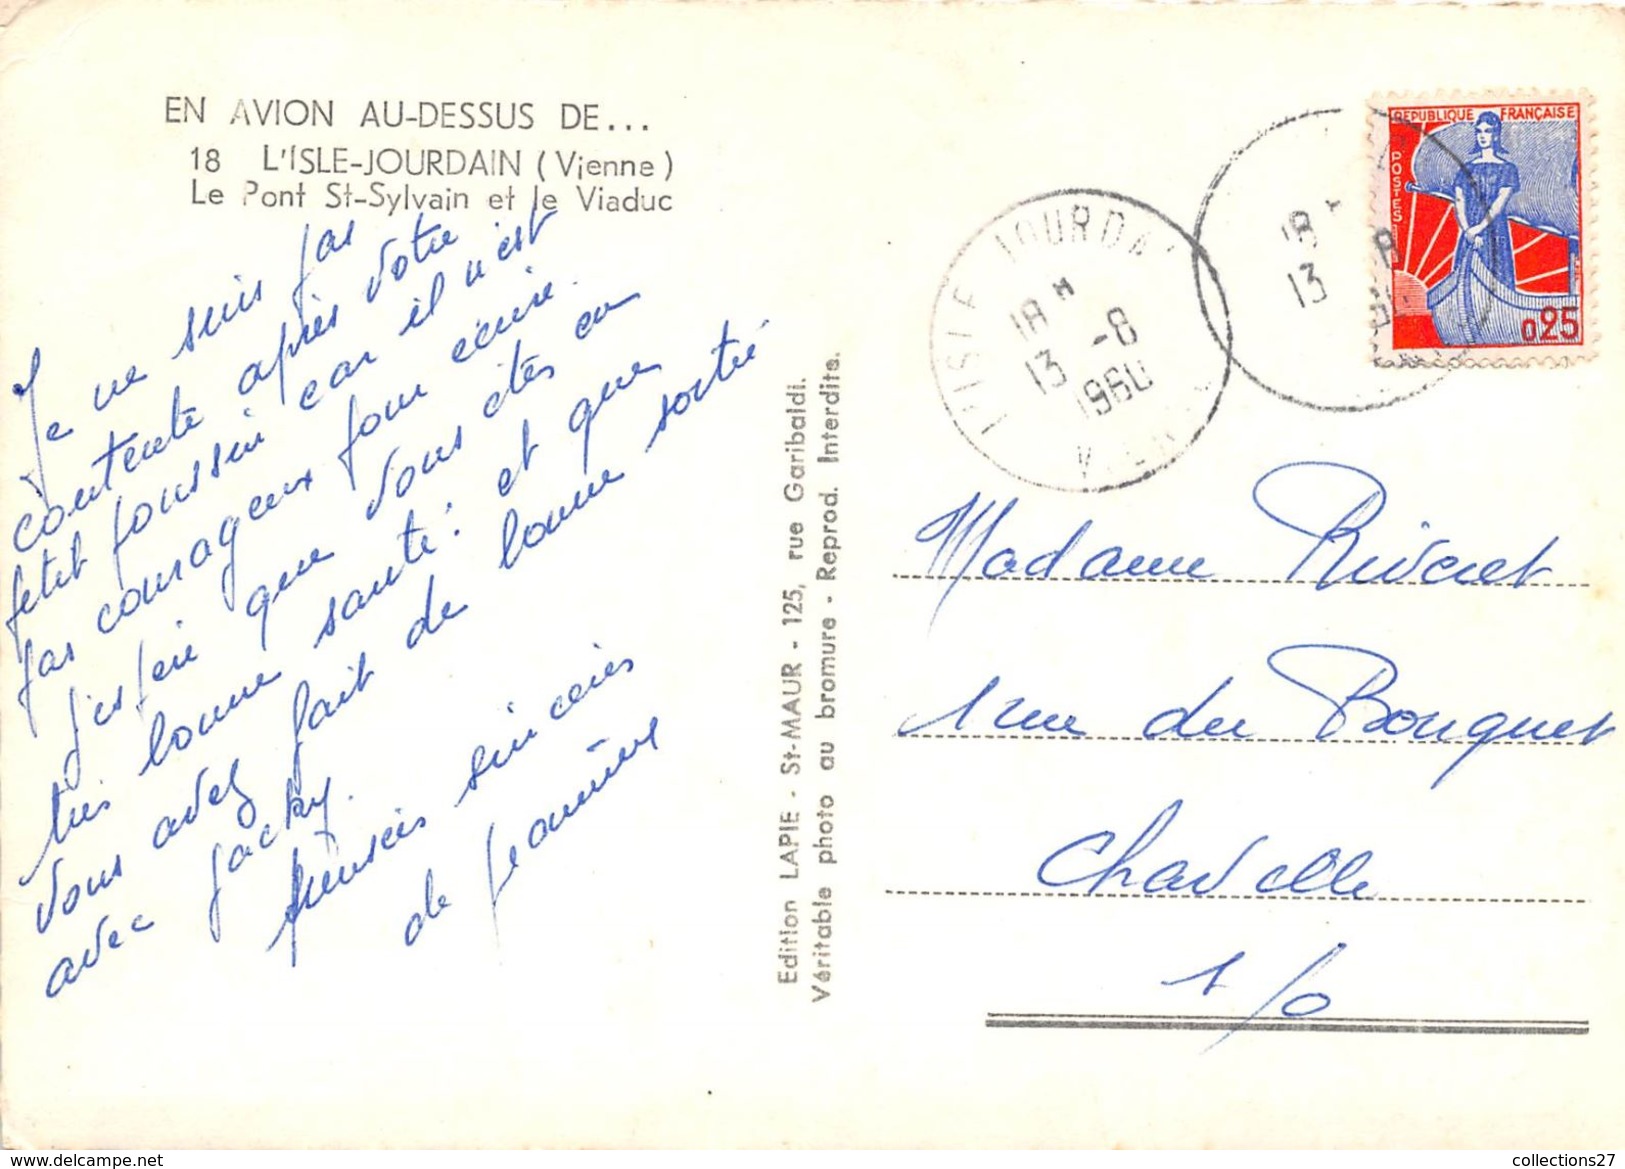 EN AVION AU-DESSUS DE...
18 L'ISLE-JOURDAIN (Vienne)
Le Pont St-Sylvain et le Viaduc
Je ne suis pas
contente après votre
petit poussin car il n'est
pas courageux pour écrire.
J'espère que vous êtes en
très bonne santé. et que
vous avez fait de bonne sortie
avec Jacky.
pensées sincères
de Jeannine
Edition LAPIE - St-MAUR - 125, rue Garibaldi.
Véritable photo au bromure - Reprod. Interdite.
L'ISLE JOURDAIN
18 H
13 -8
1960
VIENNE
18 H
13 8
REPUBLIQUE FRANÇAISE
POSTES
0,25
Madame Riveret
1 rue du Bouquet
Chaville
S/O
collections27